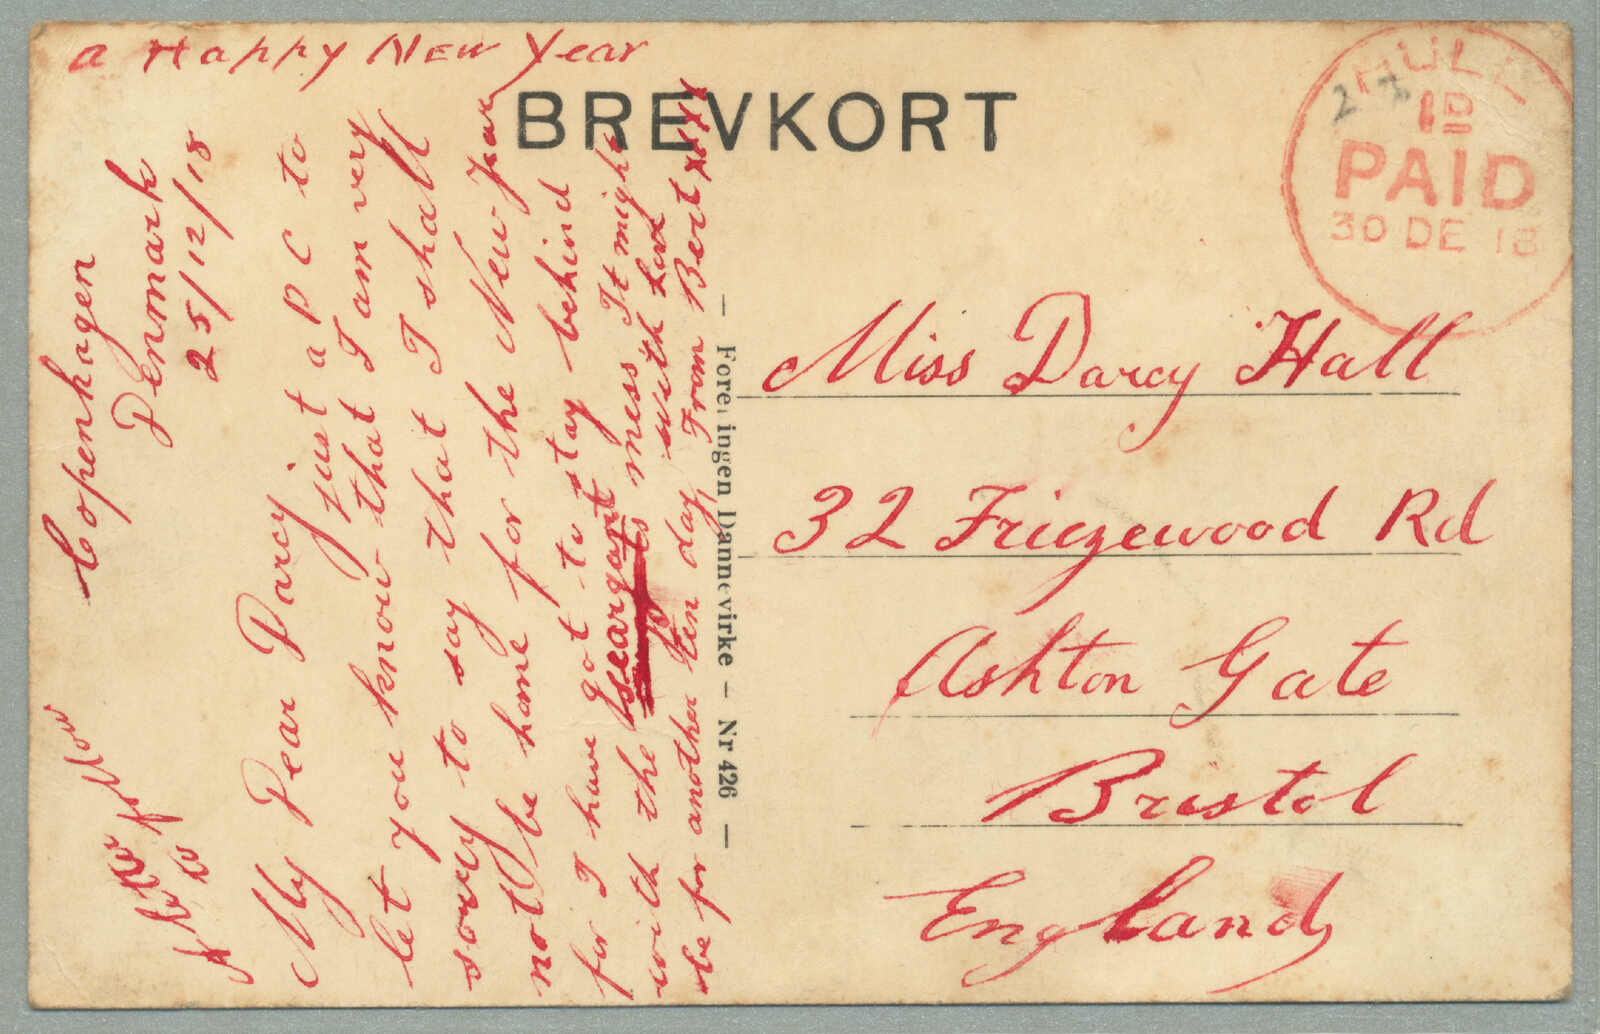 a Happy New Year
BREVKORT
HULL
1D
PAID
30 DE 18
Copenhagen
Denmark
25/12/18
My Dear Darcy just a P C to
let you know that I am very
sorry to say that I shall
not be home for the New year
for I have got to stay behind
with the seargant mess It might
be for another ten day, with luck
From Bert xxxx
Miss Darcy Hall
32 Friezewood Rd
Ashton Gate
Bristol
England
Foreningen Dannevirke - Nr 426